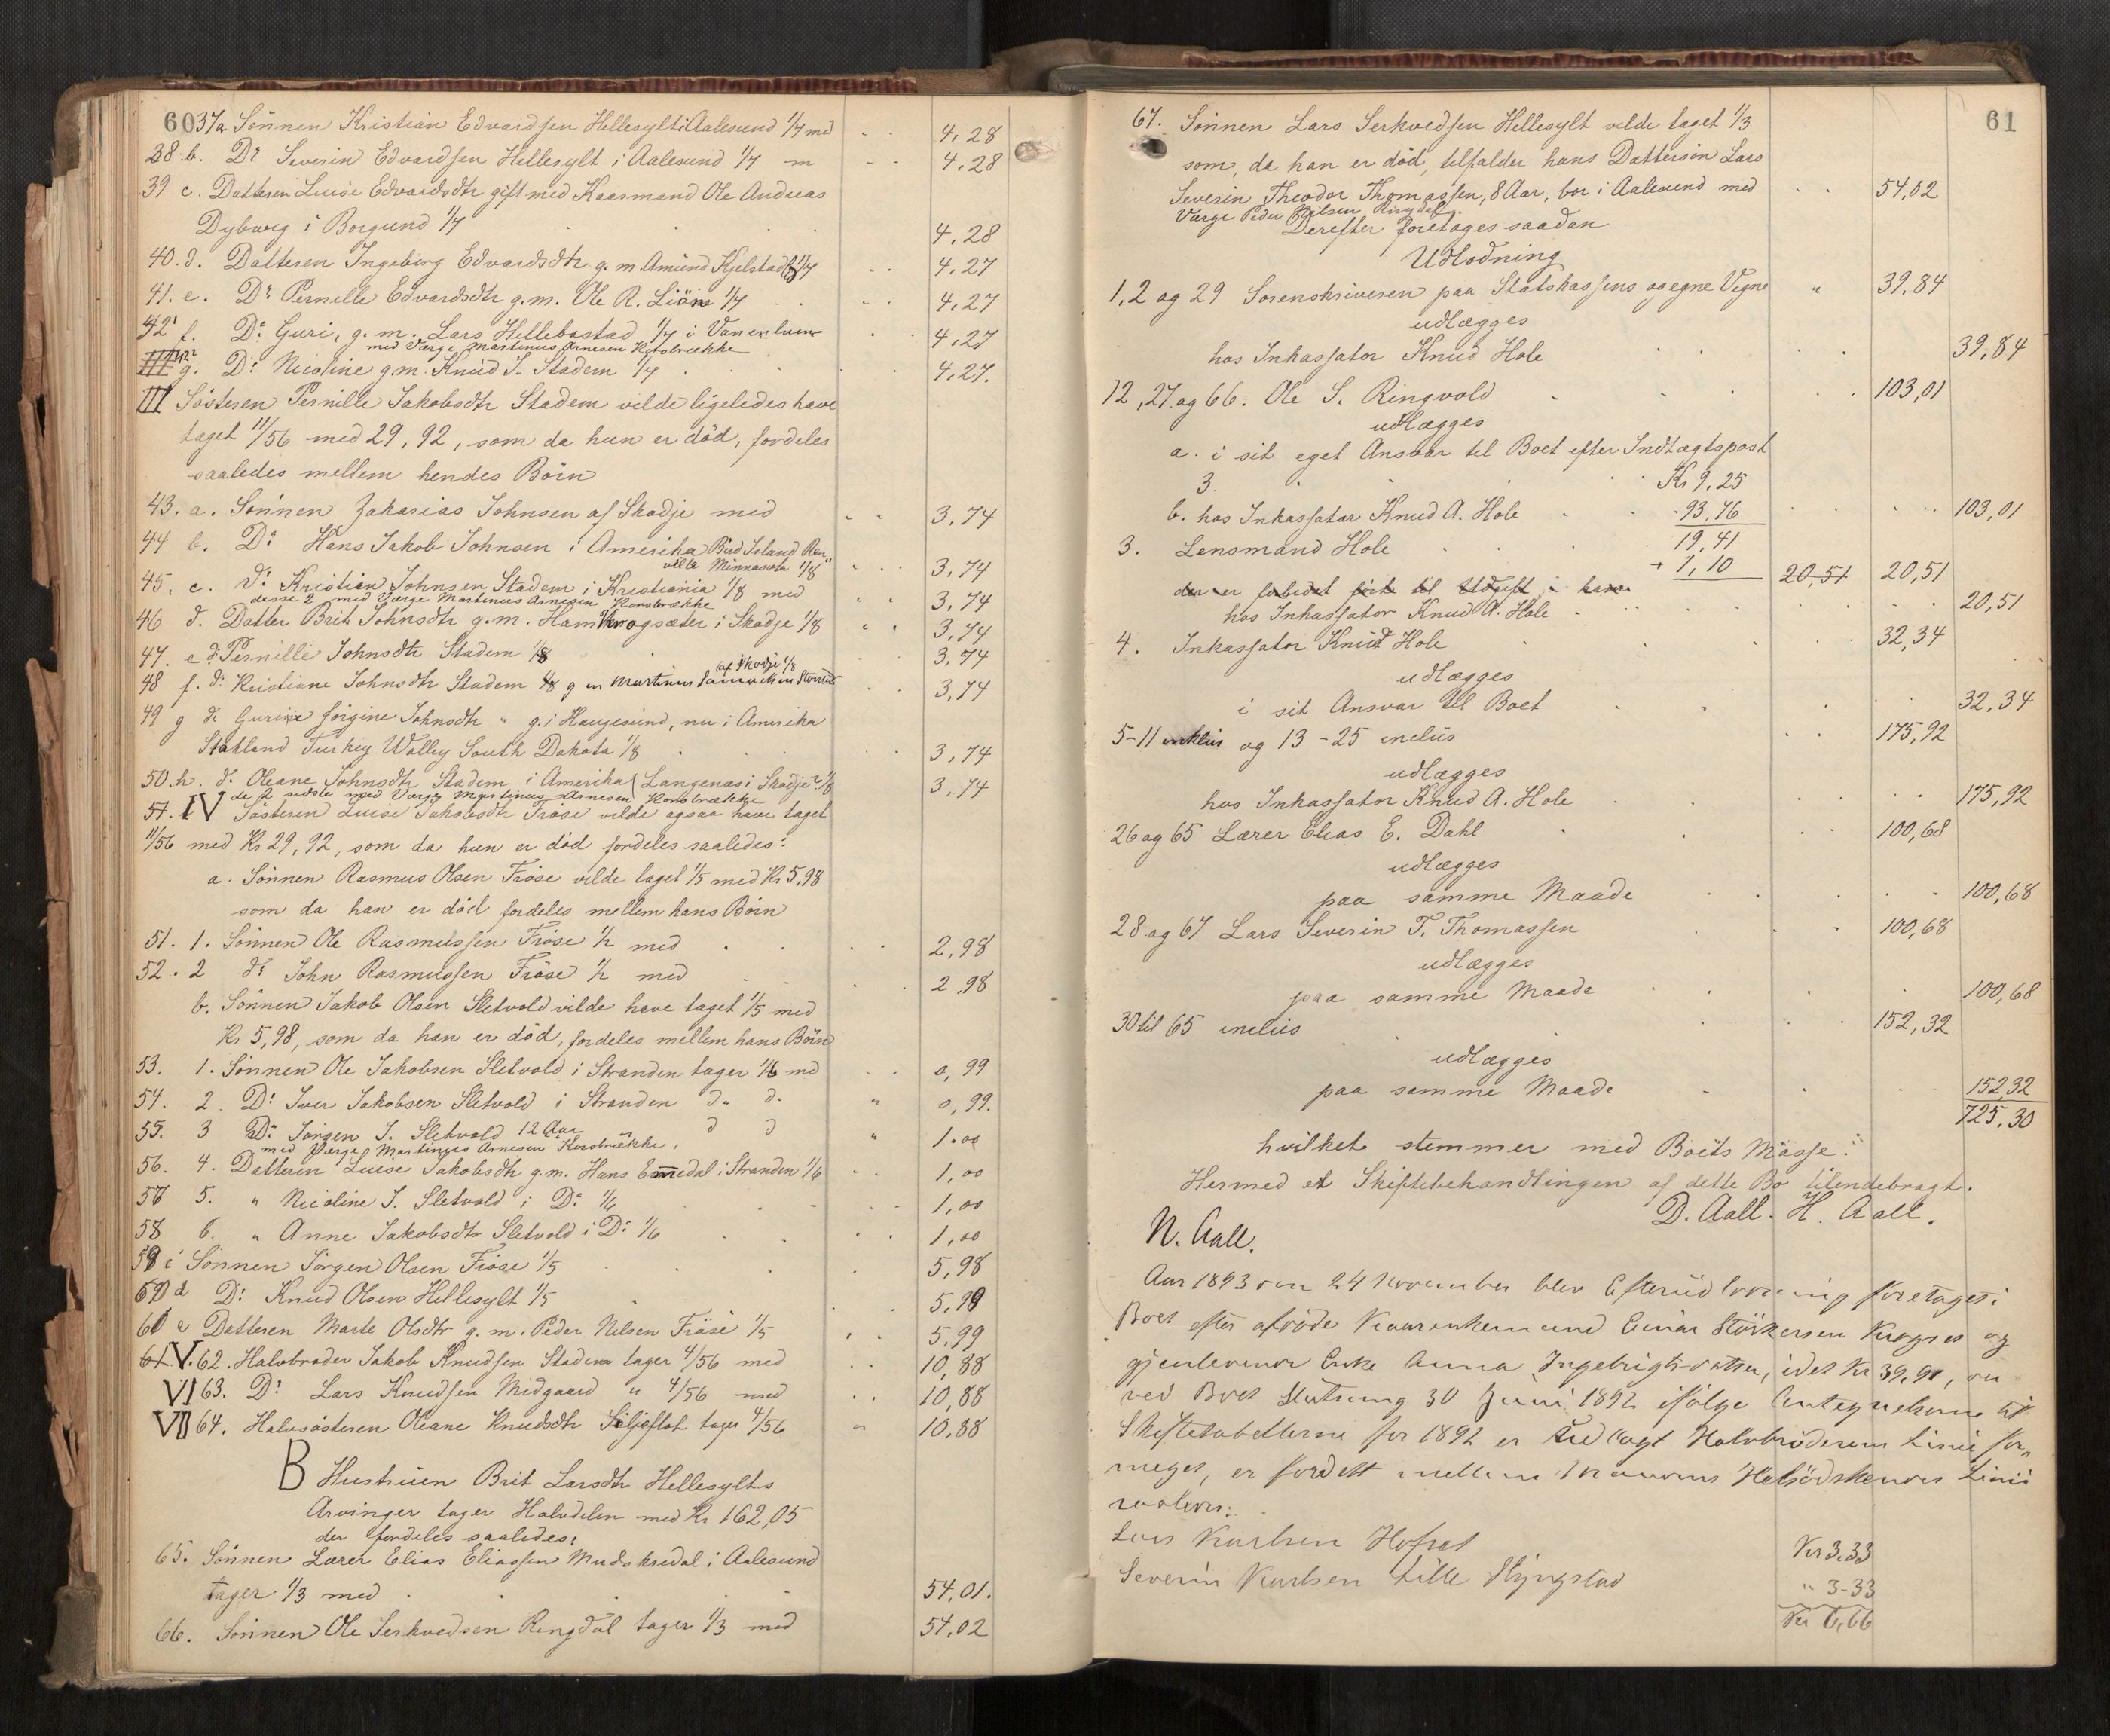 60
37a Sönnen Kristian Edvardsen Hellesylt i Aalesund 1/7 med 4,28
38. b. Do Severin Edvardsen Hellesylt i Aalesund 1/7 m 4,28
39 c. Datteren Luise Edvardsdtr gift med Kaarmand Ole Andreas
Dyburg i Borgund 1/7 4,28
40. d. Datteren Ingeborg Edvardsdtr g. m. Amund Kjelstadli 1/7 4,27
41. e. Do Pernille Edvardsdtr g. m. Ole R. Liön 1/7 4,27
42 f. Do Guri, g. m. Lars Hellebostad 1/7 i Vanelven 4,27
med Værge Martinus Arnesen Korsbrække
g. Do Nicoline g m. Knud J. Stadem 1/7 4,27.
III Söstesen Pernille Jakobsdtr Stadem vilde ligeledes have
taget 11/56 med 29,92, som da hun er död, fordeles
saaledes mellem hendes Börn
43. a. Sönnen Zakarias Johnsen af Skodje med 3,74
44 b. Do Hans Jakob Johnsen i Amerika Bird Island Ren
ville Minnasota 1/8 3,74
45. c. Do Kristian Johnsen Stadem i Kristiania 1/8 med 3,74
disse 2 med Værge Martinus Arnesen Korsbrække
46 d. Datter Brit Johnsdtr g. m. Hans Krogsæter i Skodje 1/8 3,74
47. e do Pernille Johnsdtr Stadem 1/8 3,74
48 f. do Kristiane Johnsdtr Stadem 1/8 g m Martinus (af Skodje 1/8 3,74
49 g do Gurine Jörgine Johnsdtr " g. i Haugesund, nu i Amerika
Stakland Turkey Walley South Dakota 1/8 3,74
50. h. do Oleane Johnsdtr Stadem i Amerika (Langenæs i Skodje) 1/8 3,74
de 2 sidste med Værge Martinus Arnesen Korsbrække
51. IV Söstesen Luise Jakobsdtr Fröse vilde ogsaa have taget
11/56 med Kr 29,92, som da hun er död fordeles saaledes:
a. Sönnen Rasmus Olsen Fröse vilde taget 1/5 med Kr 5,98
som da han er död fordeles mellem hans Börn
51. 1. Sönnen Ole Rasmussen Fröse 1/2 med 2,98
52. 2 do John Rasmussen Fröse 1/2 med 2,98
b. Sönnen Jakob Olsen Sletvold vilde have taget 1/5 med
Kr 5,98, som da han er död, fordeles mellem hans Börn
53. 1. Sönnen Ole Jakobsen Sletvold i Stranden tager 1/6 med 0,99
54. 2. Do Iver Jakobsen Sletvold i Stranden do do " 0,99.
55. 3 Do Jörgen J. Sletvold 12 Aar d d " 1.00
med Værge Martinus Arnesen Korsbrække.
56. 4. Datteren Luise Jakobsdtr g. m. Hans Emmedal i Stranden 1/6 1,00
57 5. " Nicoline J. Sletvold i Do 1/6 1,00
58 6. " Anne Jakobsdtr Sletvold i Do 1/6 1,00
59 c Sönnen Jörgen Olsen Fröse 1/5 5,98
60 d Do Knud Olsen Hellesylt 1/5 5,99
61 e Datteren Marte Olsdtr g. m. Peder Nilsen Fröse 1/5 5,99
61. V. 62. Halvbroder Jakob Knudsen Stadem tager 4/56 med 10,88
VI 63. Do Lars Knudsen Midgaard " 4/56 med 10,88
VII 64. Halvsösteren Oleane Knudsdtr Siljeflot tager 4/56 " 10,88
B Hustruen Brit Larsdtr Hellesylts
Arvinger tager Halvdelen med Kr 162,05
der fordeles saaledes:
65. Sönnen Lærer Elias Eliassen Mudskredal i Aalesund
tager 1/3 med 54,01.
66. Sönnen Ole Serkvedsen Ringdal tager 1/3 med 54,02
61
67. Sönnen Lars Serkvedsen Hellesylt vilde taget 1/3
som, da han er död, tilfalder hans Dattersön Lars
Severin Theodor Thomassen, 8 Aar, bor i Aalesund med 54,02
Værge Peder Nilsen Ringdal.
Derefter foretages saadan
Udlodning
1, 2 og 29 Sorenskriveren paa Statskassens og egne Vegne " 39,84
udlægges
hos Inkassator Knud Hole 39,84
12, 27. og 66. Ole S. Ringvold 103,01
udlægges
a. i sit eget Ansvar til Boet efter Indtægtspost
3. Kr 9,25
b. hos Inkassator Knud A. Hole 93,76 103,01
3. Lensmand Hole 19,41
+ 1,10 20,51 20,51
der er forledet förte til Udgift i
hos Inkassator Knud A. Hole 20,51
4. Inkassator Knud Hole 32,34
udlægges
i sit Ansvar til Boet 32,34
5-11 inklus og 13-25 inclus 175,92
udlægges
hos Inkassator Knud A. Hole 175,92
26 og 65 Lærer Elias E. Dahl 100,68
udlægges
paa samme Maade 100,68
28 og 67 Lars Severin T. Thomassen 100,68
udlægges
paa samme Maade 100,68
30 til 65 inclus 152,32
udlægges
paa samme Maade 152,32
725,30
hvilket stemmer med Boets Masse.
Hermed er Skiftebehandlingen af dette Bo tilendebragt.
D. Aall. H. Aall.
N. Aall.
Aar 1893 den 24 November blev Efterudlodning foretaget i
Boet efter afdöde Einar Störkersen og
gjenlevende Enke Anna Ingebrigtsdatter, idet Kr 39,98, der
ved Boets Slutning 30 Juni 1892 ifölge Antegnelserne til
Skiftetabellerne for 1892 er udlagt Halvbröderens Linie for
meget, er fordelt mellem Helsödskendes Linie
saaledes:
Lars Karlsen Kr 3.33
Severin Karlsen Lille " 3-33
Kr 6,66